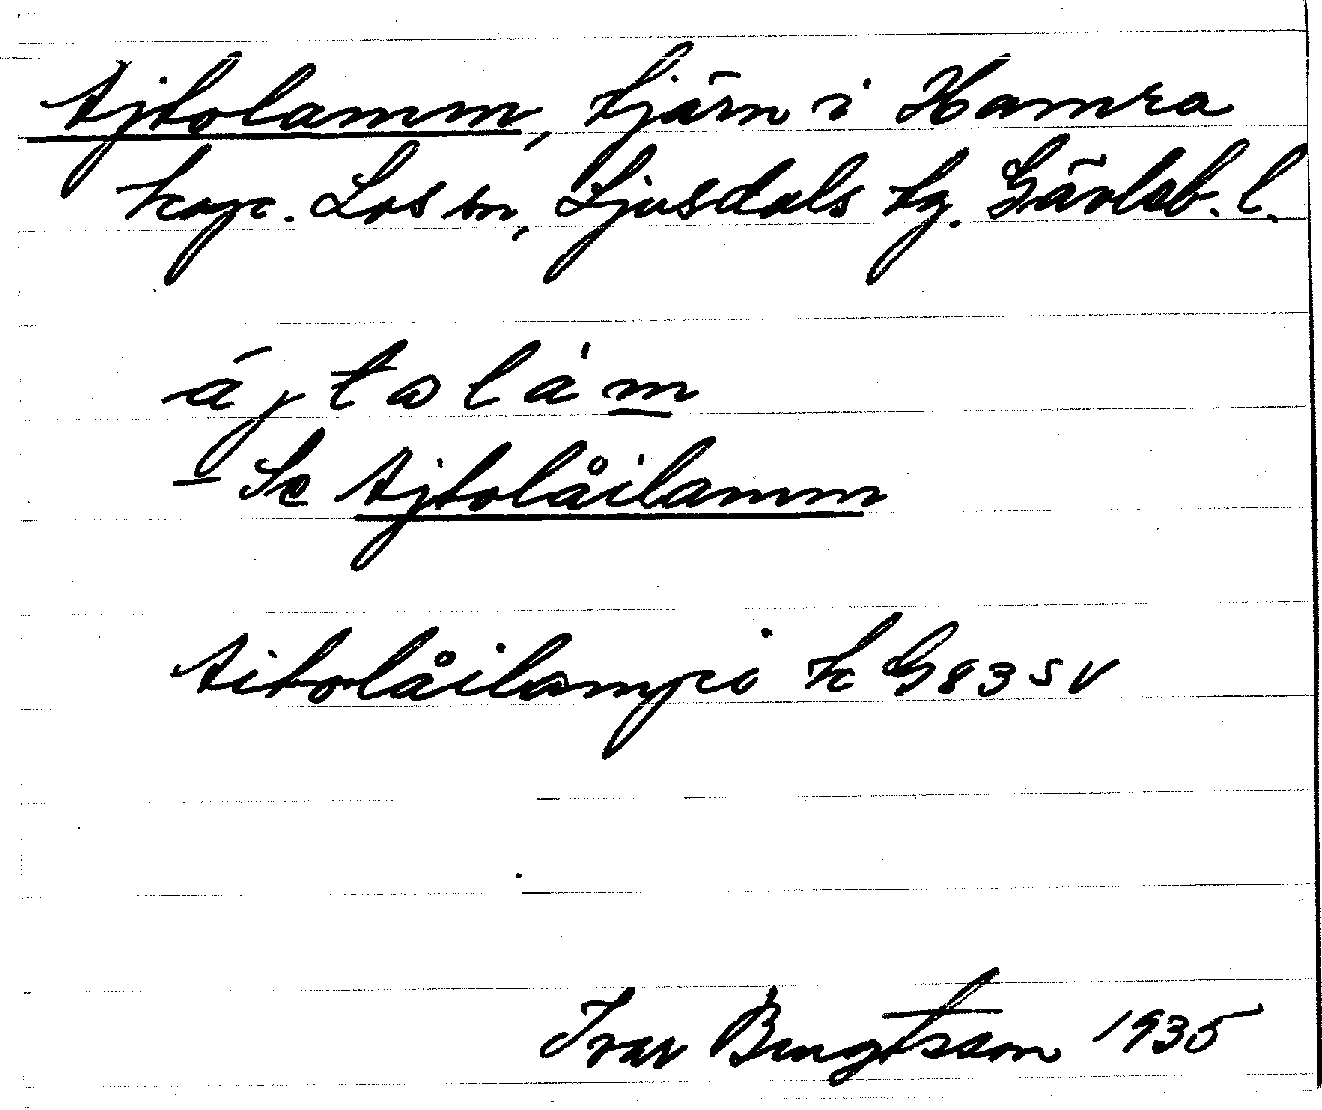 Ajtolamm, tjärn i Hamra
kap. Los sn, Ljusdals tg. Gävleb. l.
ájtolàm
- Se Ajtolåilamm
Aitolåilampi k G83SV
Ivar Bengtsson 1935